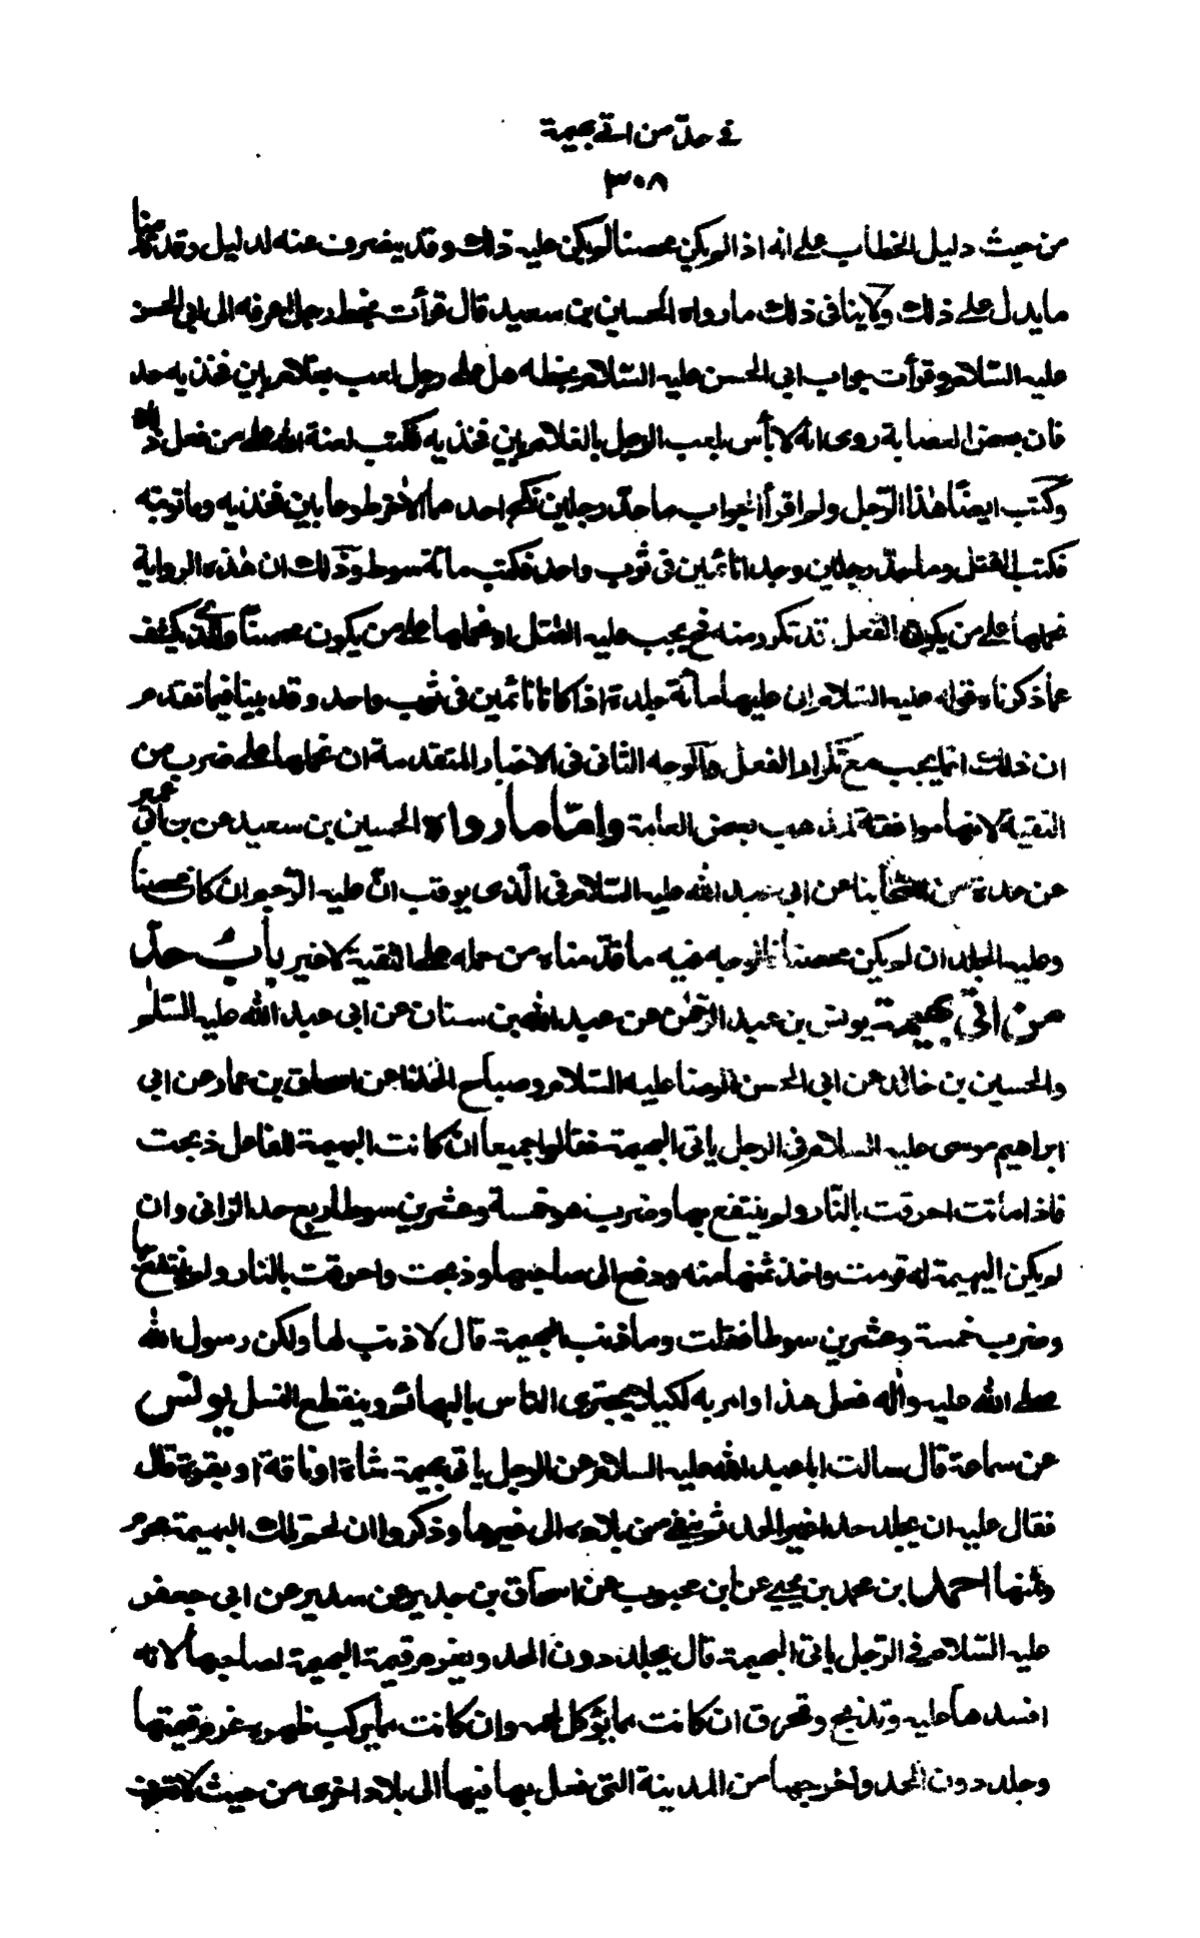 في حد من اتى بهيمة
٣٠٨
من حيث دليل الخطاب على انه اذا لم يكن محصنا لم يكن عليه ذلك وقد ينصرف عنه لدليل وقد قدمنا
ما يدل على ذلك ولا ينافى ذلك ما رواه الحسين بن سعيد قال قرأت بخط رجل اعرفه الى ابى الحسن
عليه السلام وقرأت جواب ابى الحسن عليه السلام بخطه هل على رجل لعب بغلام بين فخذيه حد
فان بعض العصابة روى انه لا بأس بلعب الرجل بالغلام بين فخذيه فكتب لعنة الله على من فعل ذلك
وكتب ايضا هذا الرجل ولم اقرأ الجواب ما حد رجلين نكح احدهما الاخر طوعا بين فخذيه وما توبته
فكتب القتل وما حد رجلين وجدا نائمين فى ثوب واحد فكتب مائة سوط وذلك ان هذه الرواية
نحملها على من يكون الفعل قد تكرر منه فح يجب عليه القتل او نحملها على من يكون محصنا والذى يكشف
عما ذكرناه قوله عليه السلام ان عليهما مائة جلدة اذا كانا نائمين فى ثوب واحد وقد بينا فيما تقدم
ان ذلك انما يجب مع تكرار الفعل والوجه الثانى فى الاخبار المتقدمة ان نحملها على ضرب من
التقية لانها موافقة لمذهب بعض العامة واما ما رواه الحسين بن سعيد عن بن ابى عمير
عن عدة من اصحابنا عن ابى عبد الله عليه السلام فى الذى يوقب ان عليه الرجم ان كان محصنا
وعليه الجلد ان لم يكن محصنا فالوجه فيه ما قدمناه من حمله على التقية لا غير باب حد
من اتى بهيمة يونس بن عبد الرحمن عن عبد الله بن سنان عن ابى عبد الله عليه السلم
والحسين بن خالد عن ابى الحسن الرضا عليه السلام وصباح الحذاء عن اسحاق بن عمار عن ابى
ابراهيم موسى عليه السلام فى الرجل ياتى البهيمة فقالوا جميعا ان كانت البهيمة للفاعل ذبحت
فاذا ماتت احرقت بالنار ولم ينتفع بها وضرب هو خمسة وعشرين سوطا ربع حد الزانى وان
لم يكن البهيمة له قومت واخذ ثمنها منه ودفع الى صاحبها وذبحت واحرقت بالنار ولم ينتفع بها
وضرب خمسة وعشرين سوطا فقلت وما ذنب البهيمة قال لا ذنب لها ولكن رسول الله
صلى الله عليه واله فعل هذا وامر به لكيلا يجترى الناس بالبهائم وينقطع النسل يونس
عن سماعة قال سالت ابا عبد الله عليه السلام عن الرجل ياتى بهيمة شاة او ناقة او بقرة قال
فقال عليه ان يجلد حدا غير الحد ثم ينفى من بلاده الى غيرها وذكروا ان لحم تلك البهيمة محرم
وثمنها احمد ابن محمد بن يحيى عن ابن محبوب عن اسحاق بن جدير عن سدير عن ابى جعفر
عليه السلام فى الرجل ياتى البهيمة قال يجلد دون الحد ويغرم قيمة البهيمة لصاحبها لانه
افسدها عليه وتذبح وتحرق ان كانت مما يؤكل لحمه وان كانت مما يركب ظهره غرم قيمتها
وجلد دون الحد واخرجها من المدينة التى فعل بها فيها الى بلاد اخرى من حيث لا تعرف